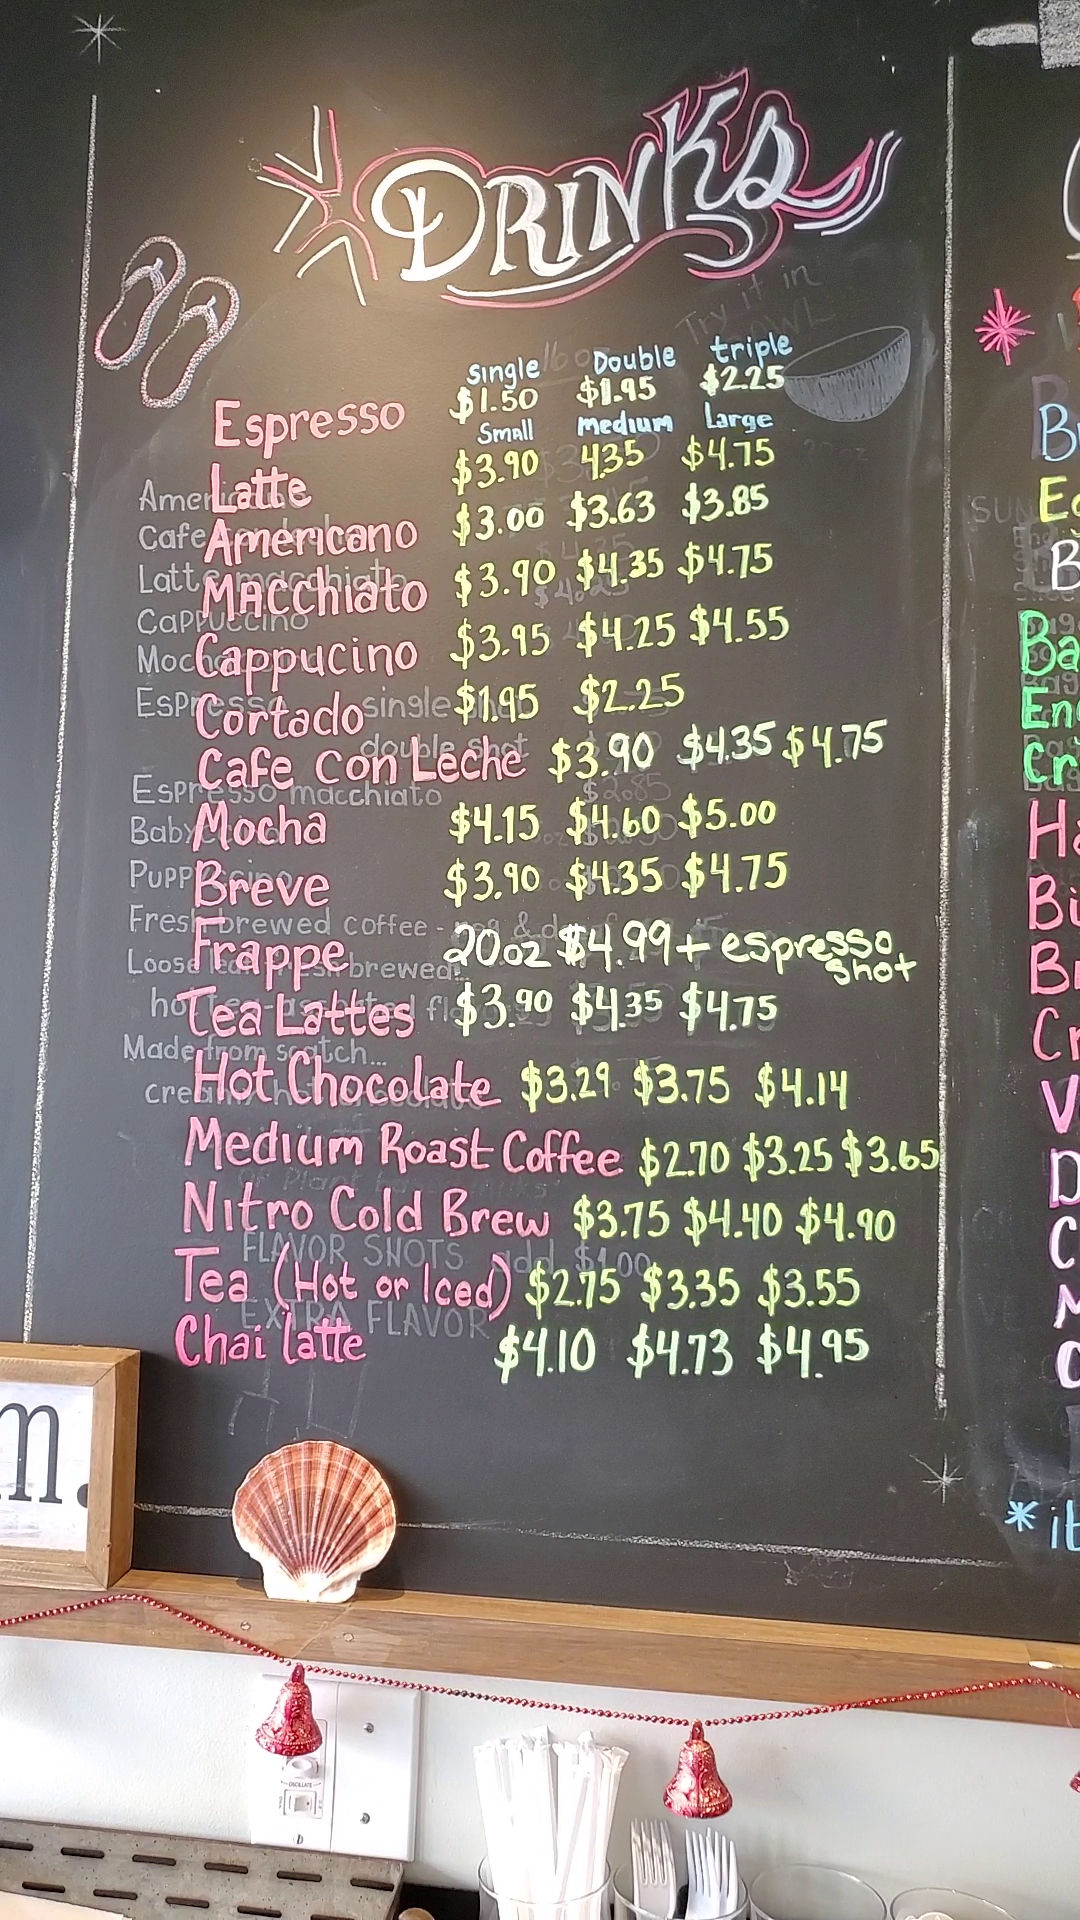 DRINKS
Try it in
Single Double triple
Espresso $1.50 $1.95 $2.25
Small medium Large
Latte $3.90 4.35 $4.75
Americano $3.00 $3.63 $3.85
MACChiato $3.90 $4.35 $4.75
Cappucino $3.95 $4.25 $4.55
Cortado $1.95 $2.25
Cafe Con Leche $3.90 $4.35 $4.75
Mocha $4.15 $4.60 $5.00
Breve $3.90 $4.35 $4.75
Frappe 20oz $4.99 + espresso
shot
Tea Lattes $3.90 $4.35 $4.75
Hot Chocolate $3.29 $3.75 $4.14
Medium Roast Coffee $2.70 $3.25 $3.65
Nitro Cold Brew $3.75 $4.40 $4.90
Tea (Hot or Iced) $2.75 $3.35 $3.55
Chai latte $4.10 $4.73 $4.95
Cappuccino
single shot
double shot
Espresso macchiato
Fresh brewed coffee -
Made from scatch...
FLAVOR SHOTS add $1.00
EXTRA FLAVOR
m.
OSCILLATE